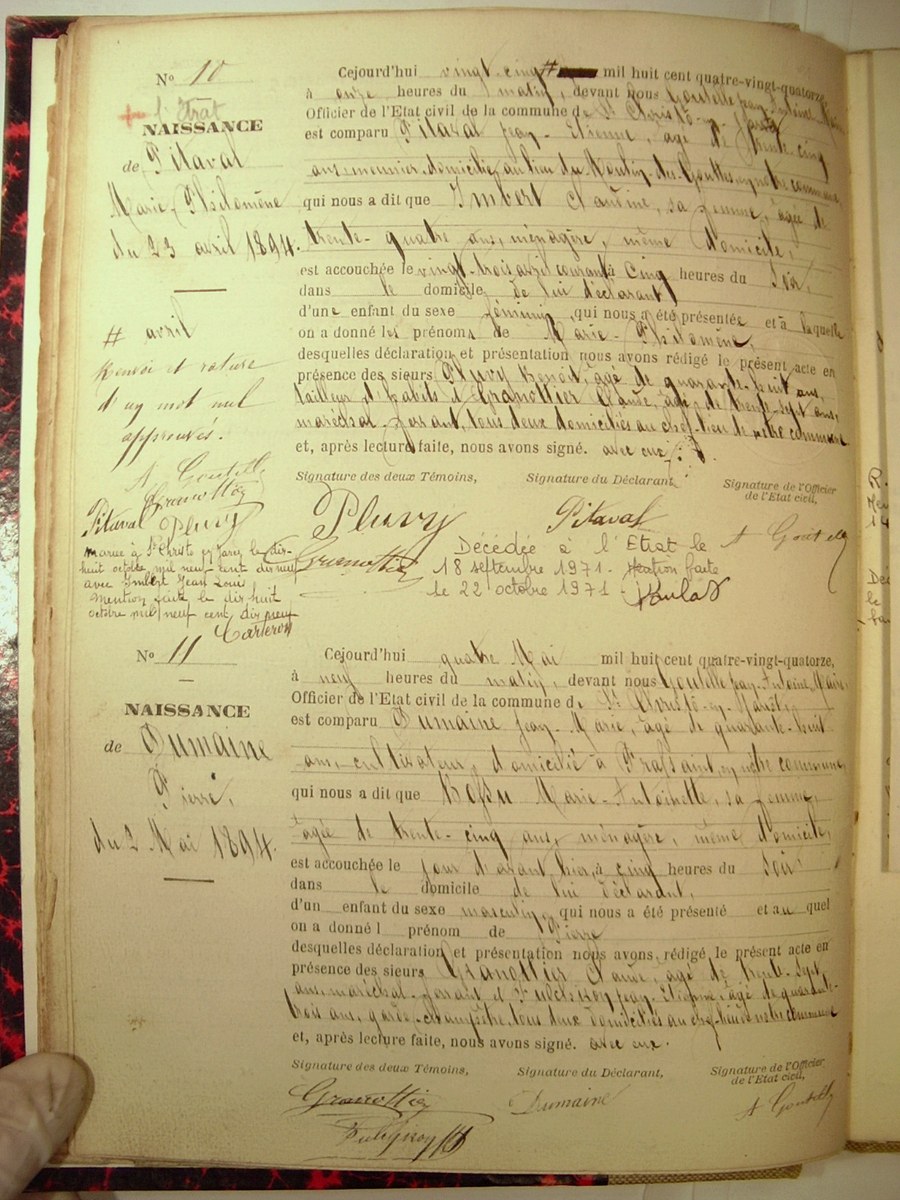 N° 10
+ l'Etrat
NAISSANCE
de Pitaval
Marie-Philomène
du 23 avril 1894.
# avril
Renvoi et rature
d'un mot nul
approuvés.
A Goutelle
Granottier
Pitaval Pluvy
mariée à St Christo en Jarez le dix-
huit octobre mil neuf cent dix neuf
avec Imbert Jean Louis
Mention faite le dix huit
octobre mil neuf cent dix neuf
Carteron
Cejourd'hui vingt-cinq # mil huit cent quatre-vingt-quatorze,
à onze heures du matin, devant nous Goutelle Jean-Antoine, Maire
Officier de l'Etat civil de la commune de St Christô-en-Jarez
est comparu Pitaval Jean-Etienne, âgé de trente-cinq
ans, meunier, domicilié au lieu du Moulin-des-Gouttes, en notre commune,
qui nous a dit que Imbert Claudine, sa femme, âgée de
trente-quatre ans, ménagère, même domicile,
est accouchée le vingt-trois avril courant à cinq heures du soir,
dans le domicile de lui déclarant,
d'une enfant du sexe féminin, qui nous a été présentée et à laquelle
on a donné les prénoms de Marie-Philomène,
desquelles déclaration et présentation nous avons rédigé le présent acte en
présence des sieurs Pluvy Benoit, âgé de quarante-huit ans,
tailleur d'habits et Granottier Claude, âgé de trente-sept ans,
maréchal-ferrant, tous deux domiciliés au chef-lieu de notre commune
et, après lecture faite, nous avons signé. avec eux.
Signature des deux Témoins, Signature du Déclarant, Signature de l'Officier
de l'Etat civil,
Pluvy Pitaval A Goutelle
Granottier
Décédée à l'Etrat le
18 septembre 1971. Mention faite
le 22 octobre 1971
N° 11
NAISSANCE
de Dumaine
Pierre,
du 2 Mai 1894.
Cejourd'hui quatre Mai mil huit cent quatre-vingt-quatorze,
à neuf heures du matin, devant nous Goutelle Jean-Antoine, Maire,
Officier de l'Etat civil de la commune de St Christô-en-Jarez,
est comparu Dumaine Jean-Marie, âgé de quarante-huit
ans, cultivateur, domicilié à en notre commune,
qui nous a dit que Marie-Antoinette, sa femme,
âgée de trente-cinq ans, ménagère, même domicile,
est accouchée le jour d'avant hier, à cinq heures du soir
dans le domicile de lui déclarant,
d'un enfant du sexe masculin, qui nous a été présenté et auquel
on a donné l prénom de Pierre
desquelles déclaration et présentation nous avons rédigé le présent acte en
présence des sieurs Granottier Claude, âgé de trente-sept
ans, maréchal-ferrant et Jean-Etienne, âgé de quarante-
trois ans, garde-champêtre, tous deux domiciliés au chef-lieu de notre commune
et, après lecture faite, nous avons signé. avec eux.
Signature des deux Témoins, Signature du Déclarant, Signature de l'Officier
de l'Etat civil,
Granottier Dumaine A Goutelle